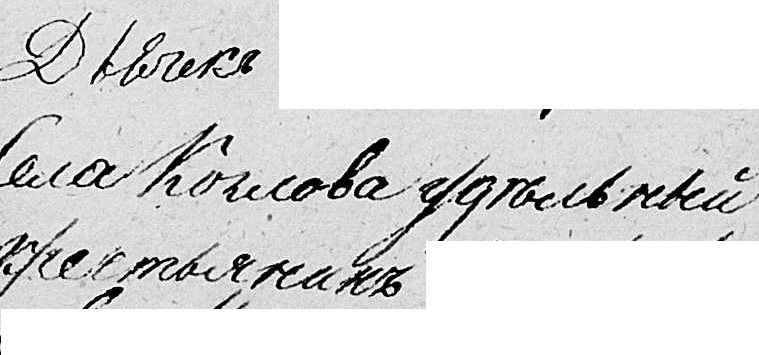 Дьячекъ
Села Козлова удѣльный
крестьянинъ